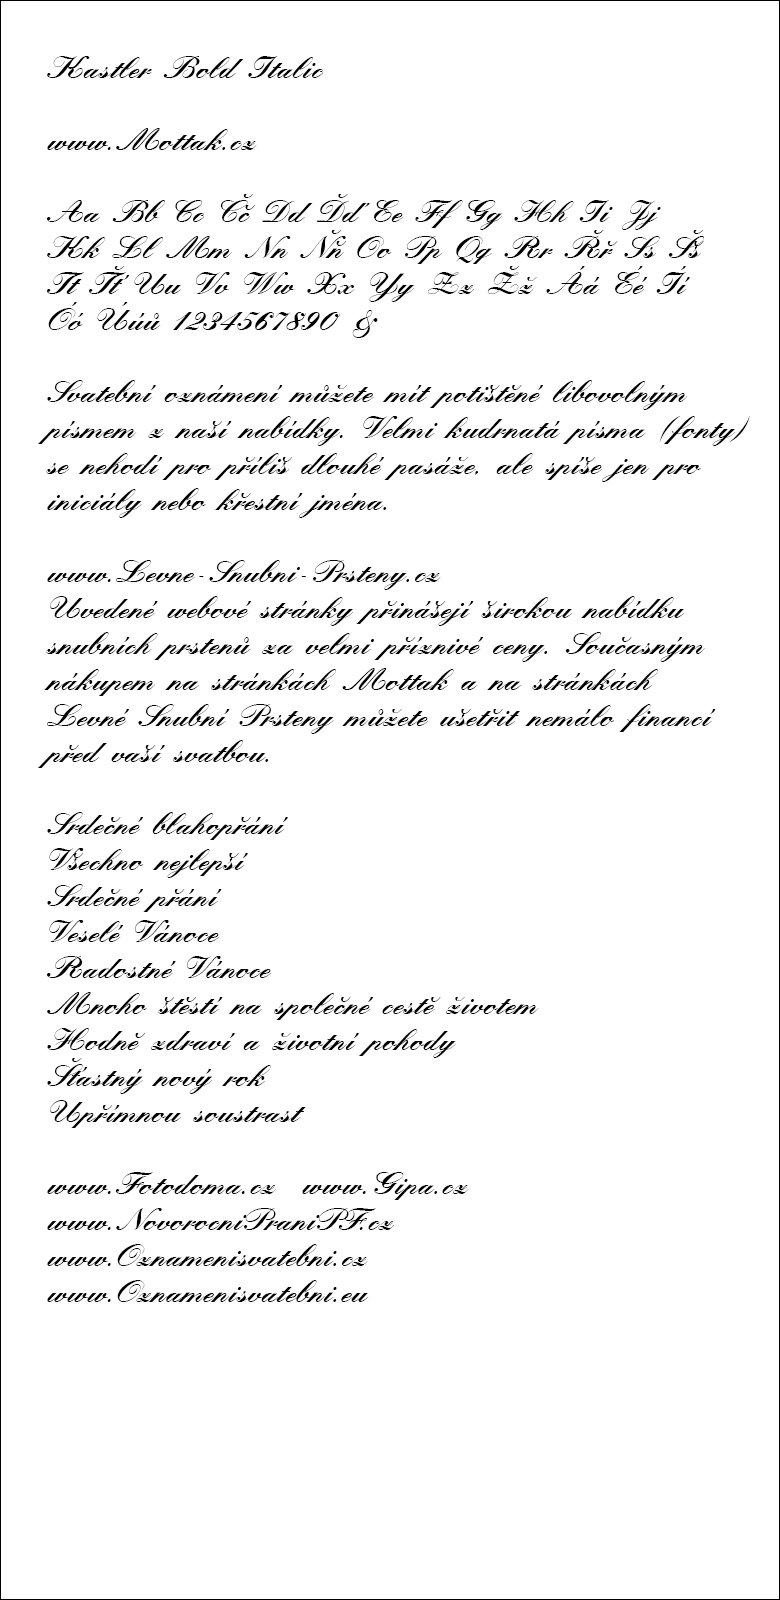 Kastler Bold Italic
www.Mottak.cz
Aa Bb Cc Čč Dd Ďď Ee Ff Gg Hh Ii Jj
Kk Ll Mm Nn Ňň Oo Pp Qq Rr Řř Ss Šš
Tt Ťť Uu Vv Ww Xx Yy Zz Žž Áá Éé Íí
Óó Úúů 1234567890 &
Svatební oznámení můžete mít potištěné libovolným
písmem z naší nabídky. Velmi kudrnatá písma (fonty)
se nehodí pro příliš dlouhé pasáže, ale spíše jen pro
iniciály nebo křestní jména.
www.Levne-Snubni-Prsteny.cz
Uvedené webové stránky přinášejí širokou nabídku
snubních prstenů za velmi příznivé ceny. Současným
nákupem na stránkách Mottak a na stránkách
Levné Snubní Prsteny můžete ušetřit nemálo financí
před vaší svatbou.
Srdečné blahopřání
Všechno nejlepší
Srdečné přání
Veselé Vánoce
Radostné Vánoce
Mnoho štěstí na společné cestě životem
Hodně zdraví a životní pohody
Šťastný nový rok
Upřímnou soustrast
www.Fotodoma.cz www.Gipa.cz
www.NovorocniPraniPF.cz
www.Oznamenisvatebni.cz
www.Oznamenisvatebni.eu